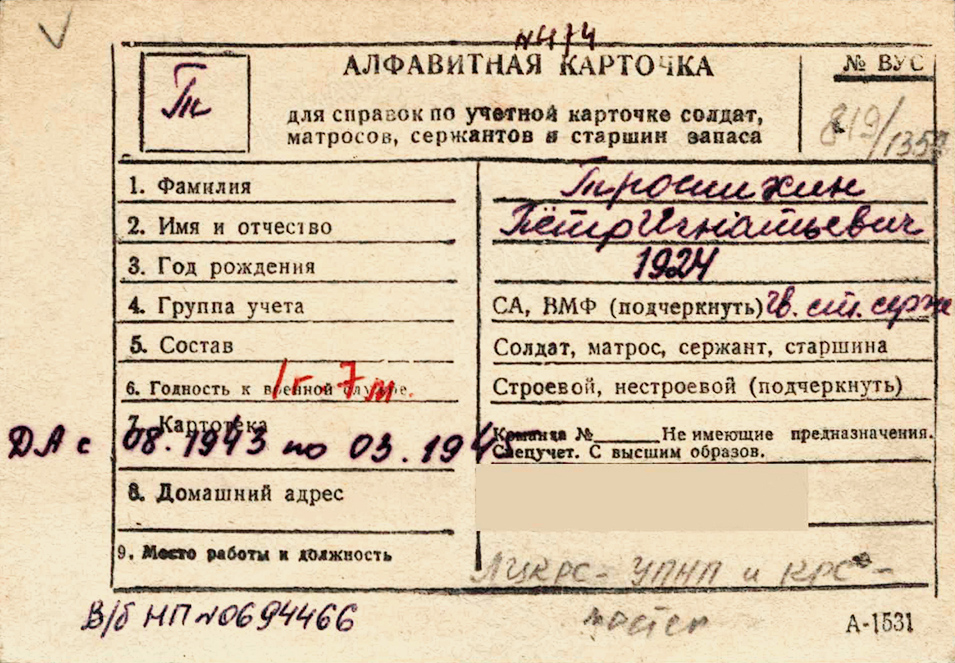 №474
АЛФАВИТНАЯ КАРТОЧКА
№ ВУС
Тр
для справок по учетной карточке солдат,
матросов, сержантов и старшин запаса
819/135
1. Фамилия Трошихин
2. Имя и отчество Пётр Игнатьевич
3. Год рождения 1924
4. Группа учета СА, ВМФ (подчеркнуть) Гв. ст. серж
5. Состав Солдат, матрос, сержант, старшина
6. Годность к военной службе. 1г. 7м. Строевой, нестроевой (подчеркнуть)
7. Картотека Команда №______ Не имеющие предназначения.
ДА с 08.1943 по 03.1945 Спецучет. С высшим образов.
8. Домашний адрес
9. Место работы и должность ЛЦКРС - УПНП и КРС -
мастер
В/б НП №0694466
А-1531